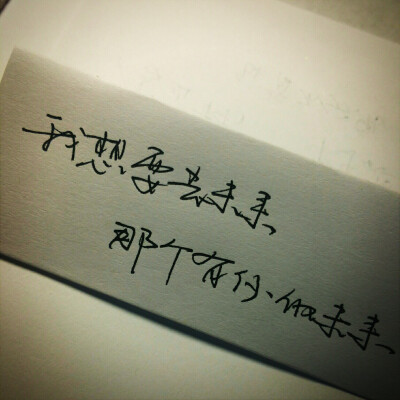 我想要去未来、
那个有你的未来、